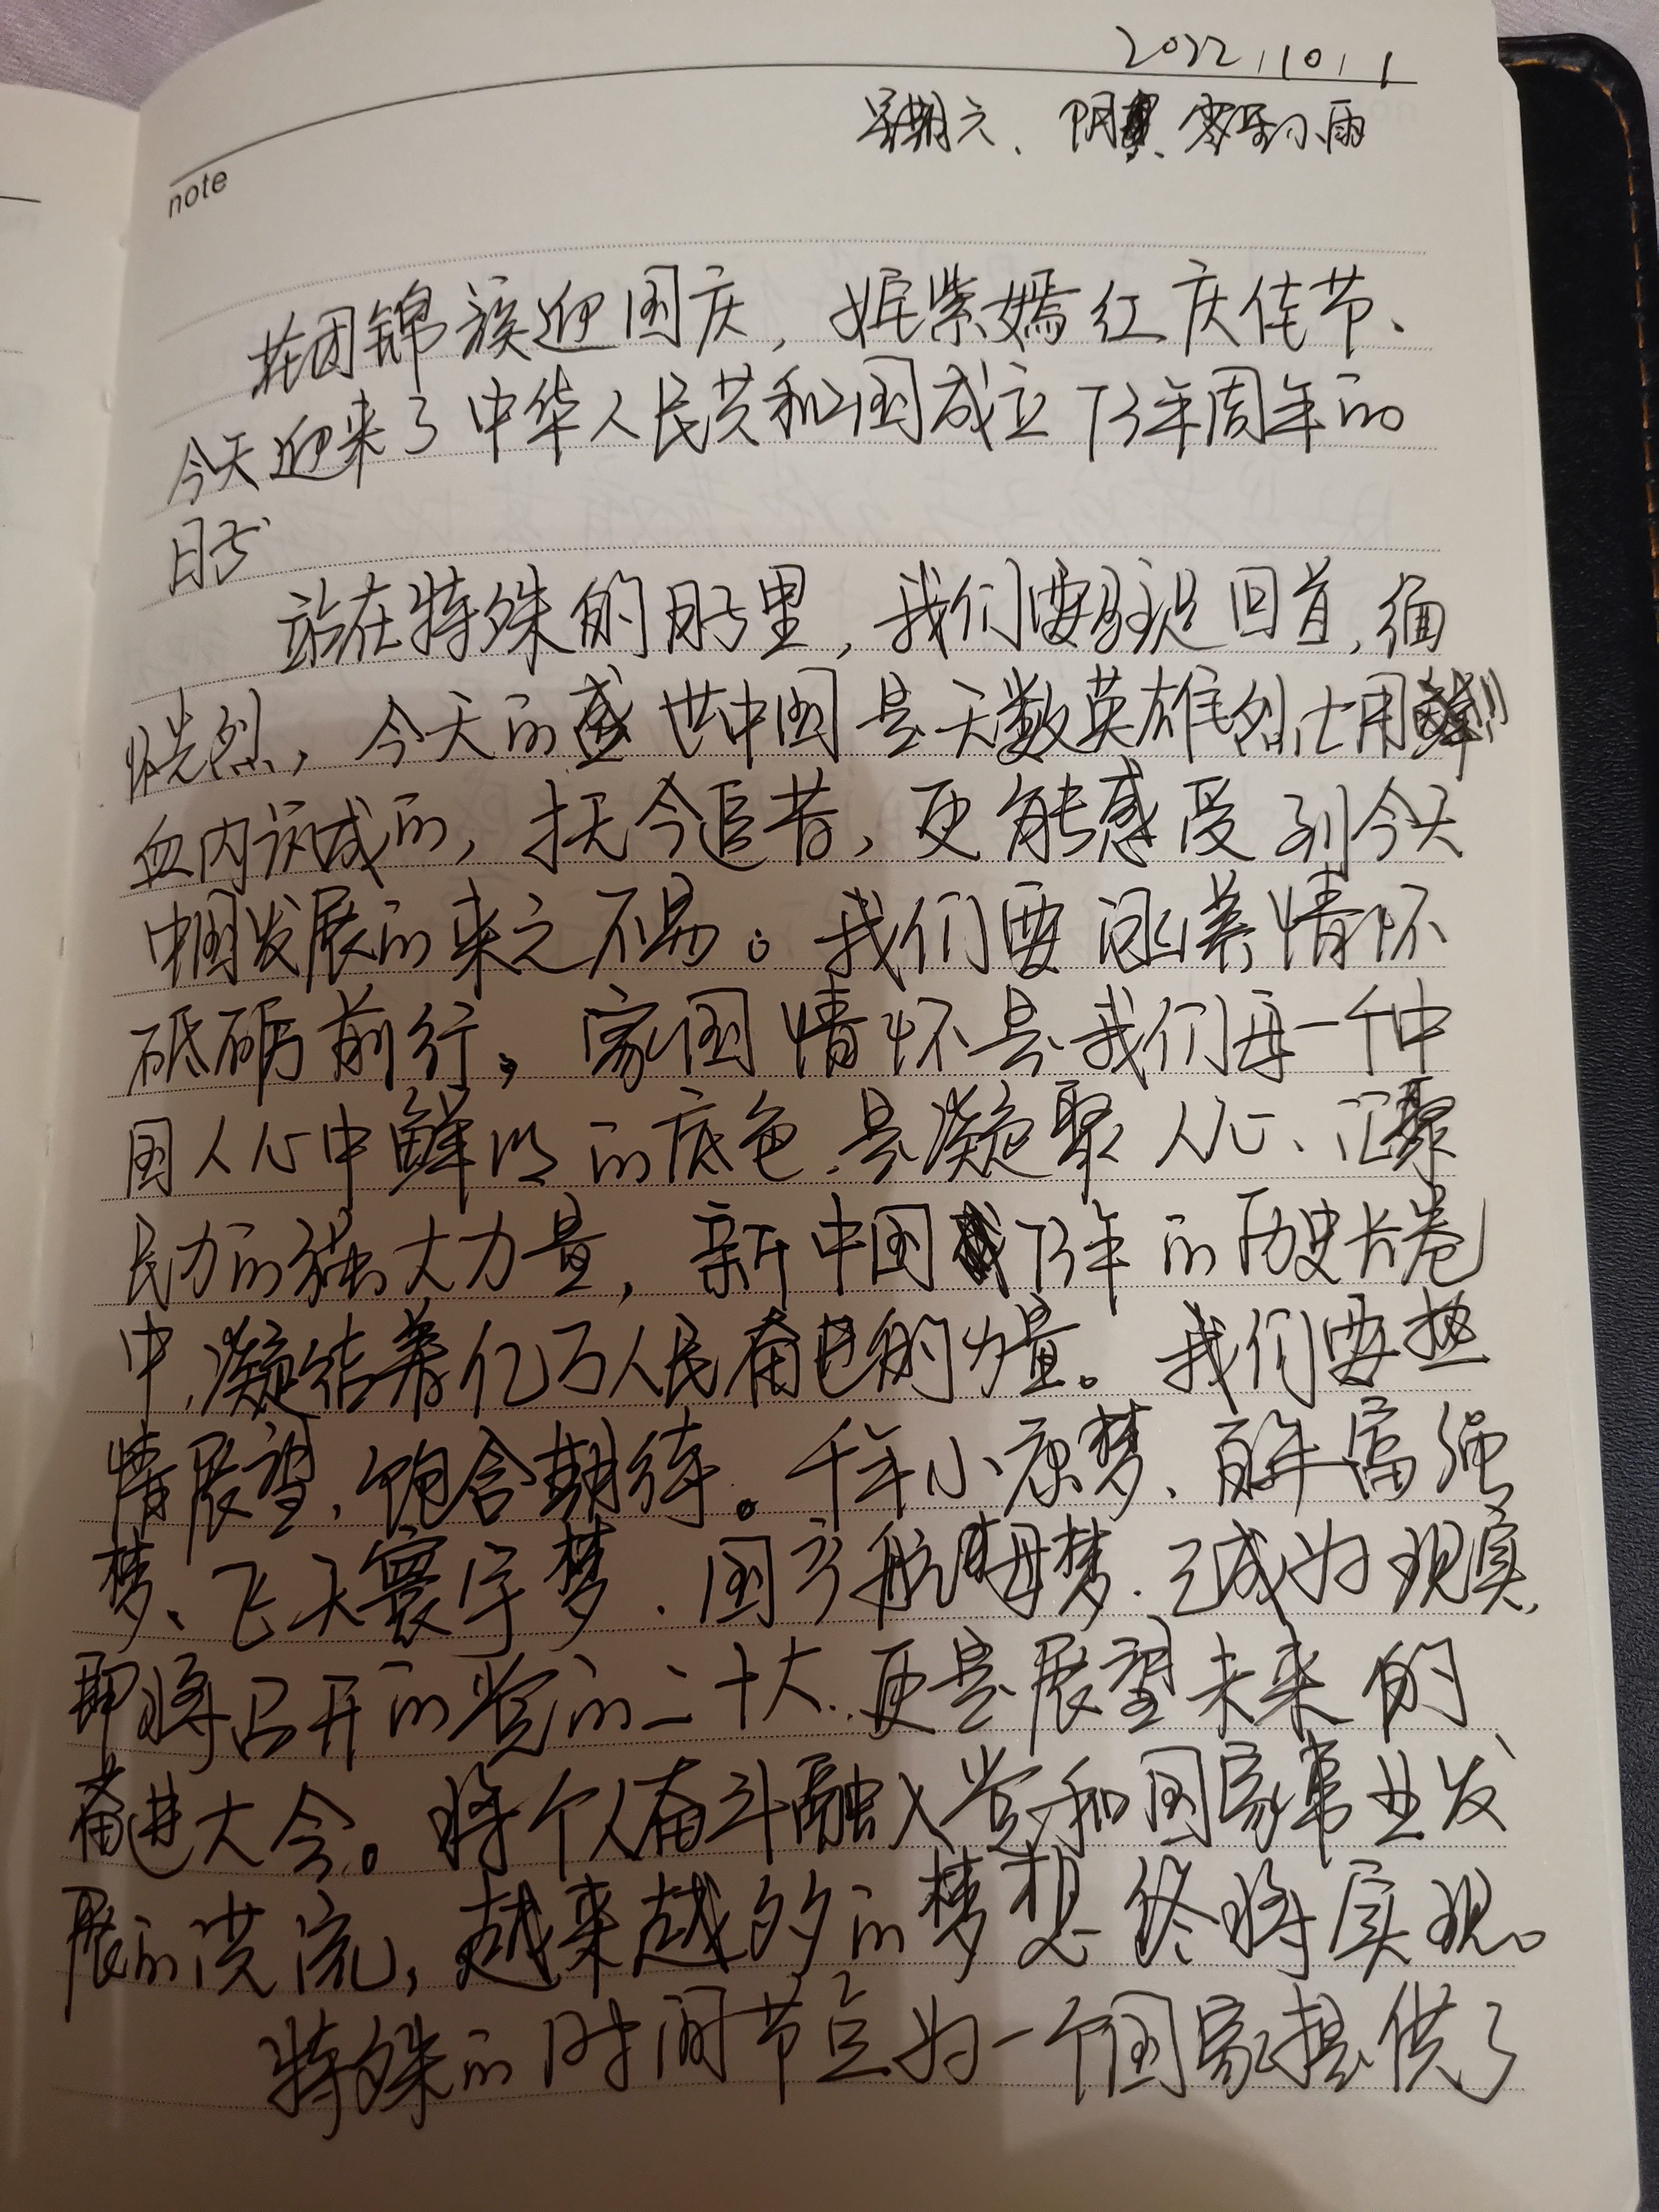 2022.10.1
星期六、阴、零星小雨
note
花团锦簇迎国庆，姹紫嫣红庆佳节、
今天迎来了中华人民共和国成立73年周年的
日子
站在特殊的日子里，我们要驻足回首，缅
怀先烈，今天的盛世中国是无数英雄烈士用鲜
血内铸成的，抚今追昔，更能感受到今天
中国发展的来之不易。我们要涵养情怀
砥砺前行，家国情怀是我们每一个中
国人心中鲜明的底色、是凝聚人心、汇聚
民力的强大力量，新中国73年的历史长卷
中，凝结着亿万人民奋进的力量。我们要热
情展望，饱含期待。千年小康梦、百年富强
梦、飞天寰宇梦、国产航母梦、已成为现实，
即将召开的党的二十大、更是展望未来的
奋进大会。将个人奋斗融入党和国家事业发
展的洪流，越来越多的梦想终将实现。
特殊的时间节点为一个国家提供了